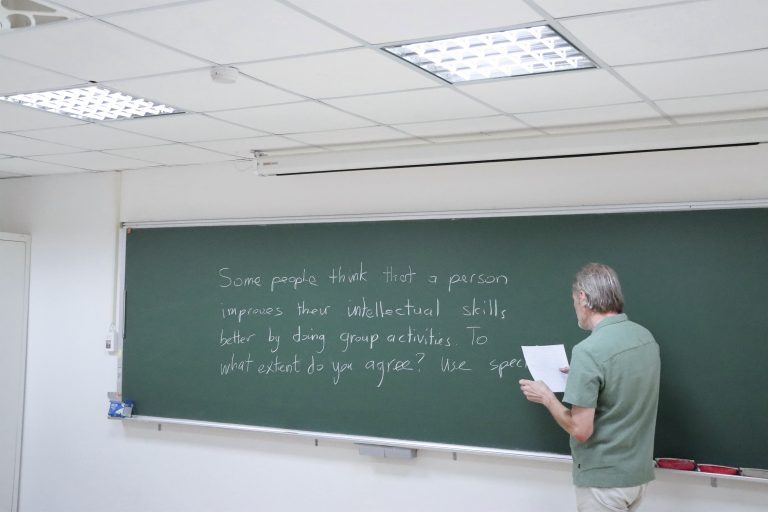 Some people think that a person
improves their intellectual skills
better by doing group activities. To
what extent do you agree? Use spec